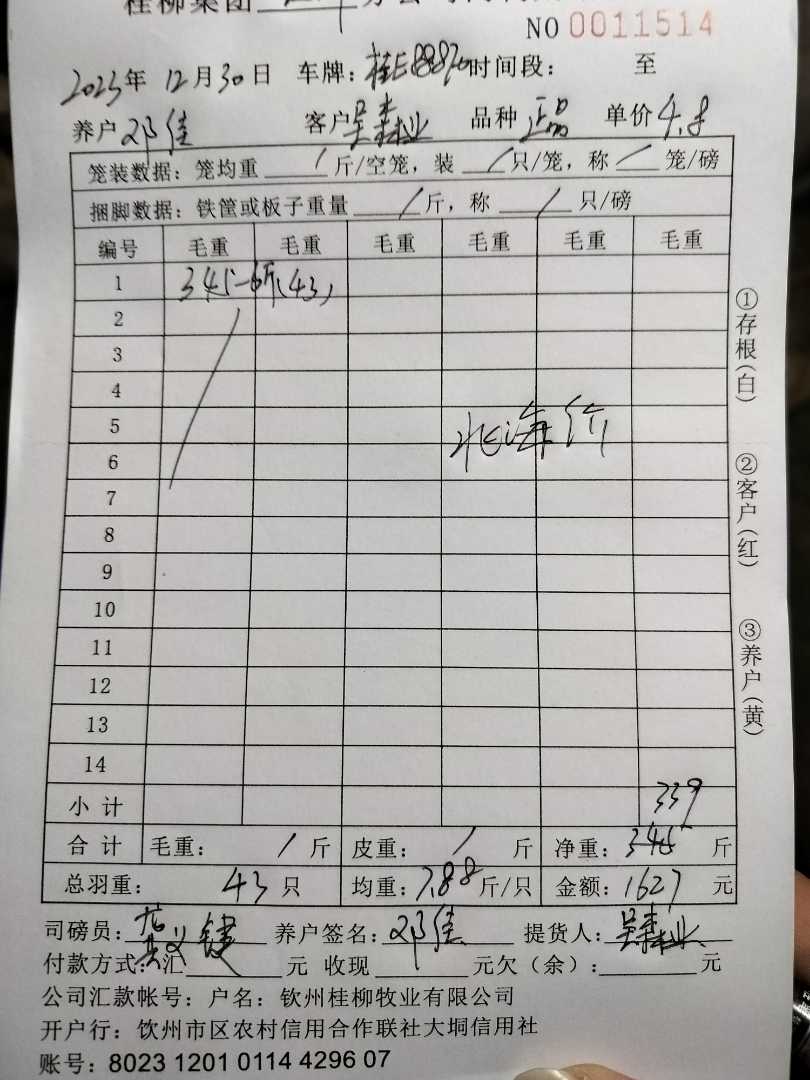 桂柳集团
NO 0011514
2023年 12月30日 车牌：桂E8876 时间段： 至
养户 邓佳 客户 吴森业 品种 正品 单价 4.8
笼装数据：笼均重 / 斤/空笼，装 / 只/笼，称 / 笼/磅
捆脚数据：铁筐或板子重量 / 斤，称 / 只/磅
编号 毛重 毛重 毛重 毛重 毛重 毛重
1 345-6斤(43)
2
3
4
5 北海价
6
7
8
9
10
11
12
13
14
小计 339
合计 毛重： / 斤 皮重： / 斤 净重：345 斤
总羽重： 43 只 均重：7.88 斤/只 金额：1627 元
司磅员： 养户签名：邓佳 提货人：吴森业
付款方式：汇 元 收现 元欠（余）： 元
公司汇款帐号：户名：钦州桂柳牧业有限公司
开户行：饮州市区农村信用合作联社大垌信用社
账号：8023 1201 0114 4296 07
①存根（白）
②客户（红）
③养户（黄）